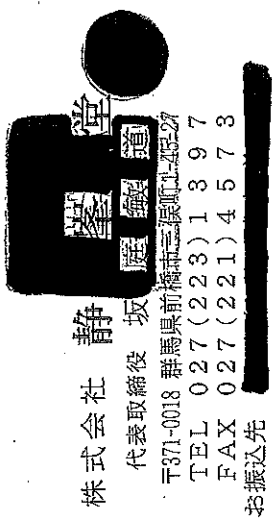 株式会社 静峯堂
代表取締役 坂庭敏道
〒371-0018 群馬県前橋市三俣町1-45-27
TEL 027(223)1397
FAX 027(221)4573
お振込先